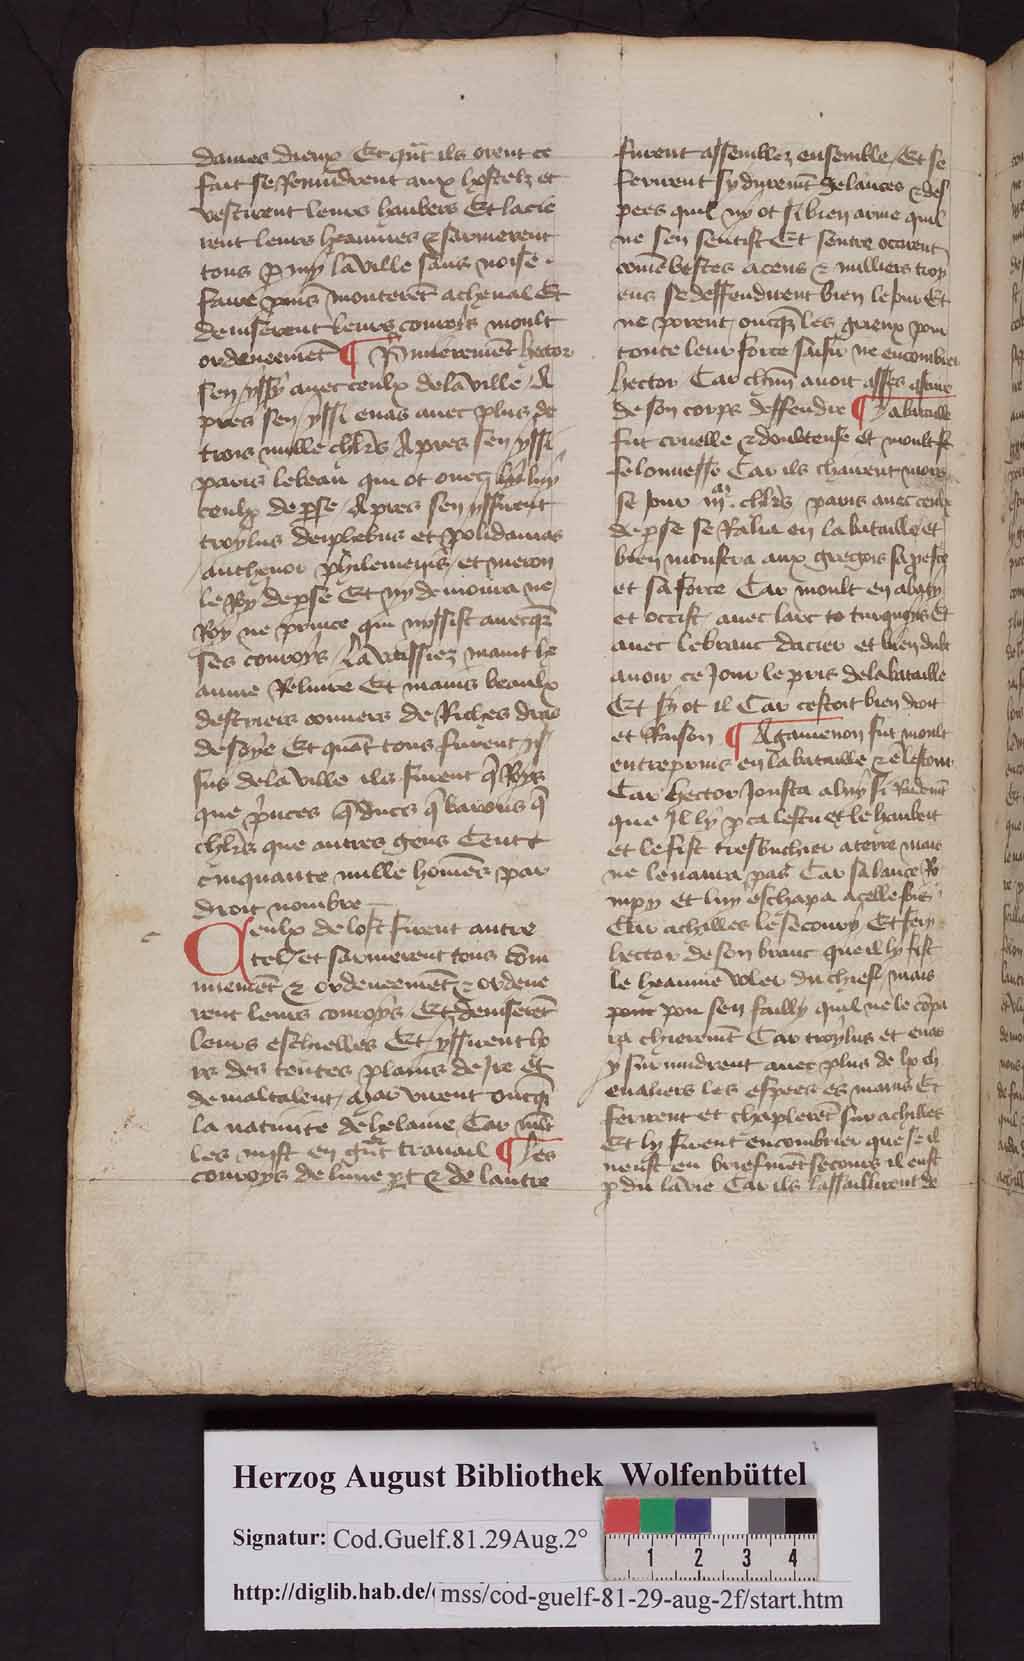 dames dieux Et qu̅t ils orent ce
fait se Reuindrent aux hostelz et
vestirent leurs haubers Et lacie
rent leurs heaumes & sarmerent
tous p̲ my la ville sans noise
faire puis monterẽt a cheual Et
deuiserent leurs conrois moult
ordeneemẽt ¶ P̲mierement hector
sen yssy auec ceulx de la ville A
pres sen yssi eneas auec plus de
trois mille chl̅rs Apres sen yssi
paris le beau qui ot ouec luy
ceulx de p̲se Apres sen yssirent
troylus deiphebus et polidamas
anthenor philemenis et meron
le Roy de p̲se Et ny demoura ne
Roy ne prince qui nyssist auecq̅s
ses conroys La veissiez maint he
aume Reluire Et mains beaulx
destriers couuers de Riches dras
de soye Et quãt tous furent ys
sus de la ville ils furent q̅ Roys
que p̍nces q̅ ducs q̅ barons q̅
chl̅rs que autres gens Cent &
cinquante mille homẽs par
droit nombre
Ceulx de lost firent autre
tel et sarmerent tous com̅
munemẽt & ordeneemẽt & ordene
rent leurs conroys Et deuiserẽt
leurs eschielles Et yssirent ho
rs des tentes plains de Ire et
de maltalent, mar virent oncq̅s
la natiuite de helaine Car mlt̅
les mist en gr̅t trauail ¶ Les
conroys de lune p̲t & de lautre
furent assemblez ensemble Et se
ferirent sy duremẽt de lances & des
pees quil ny ot si bien arme quil
ne sen sentist Et sentre occirent
com̅e bestes a cens & milliers troy
ens se deffendirent bien le Jour Et
ne porent oncq̅s les grieux pour
toute leur force sur ne encombrer
hector Car chũn auoit asses affaire
de son corps deffendre ¶ La bataille
fut cruelle & doubteuse et moult fu
felonnesse Car ils chairent mors
se Jour iijᵐ. chl̅rs paris auec ceulx
de p̲se se Ralia en la bataille et
bien monstra aux gregois sa p̲esce
et sa force Car moult en abaty
et occist auec larc to turquois Et
auec le branc dacier et bien dubt
auoir ce Jour le pris de la bataille
Et sy ot il Car cestoit bien droit
et Raison ¶ Agamenon fut moult
entrepris en la bataille & e̅ lestour
Car hector Jousta a luy si Rudemẽt
que Il ly p̲ca lescu et le haubert
et le fist tresbuchier a terre mais
ne le naura pas Car sa lance Ro
mpy et luy eschapa a celle fois
Car achilles le secoury Et fery
hector de son branc que il ly fist
le heaume voler du chief, mais
pour pou sen failly quil ne le co̅pa
ra chieremẽt Car troylus et eneas
y suruindrent auec plus de lx ch
eualiers les espees es mains Et
ferirent et chaplerẽt sur achilles
Et ly furent encombrier que se il
neust eu briefmẽt secours il eust
p̲du la vie Car ils lassaillirent de
Herzog August Bibliothek Wolfenbüttel
Signatur: Cod.Guelf.81.29Aug.2°
http://diglib.hab.de/ mss/cod-guelf-81-29-aug-2f/start.htm
1 2 3 4